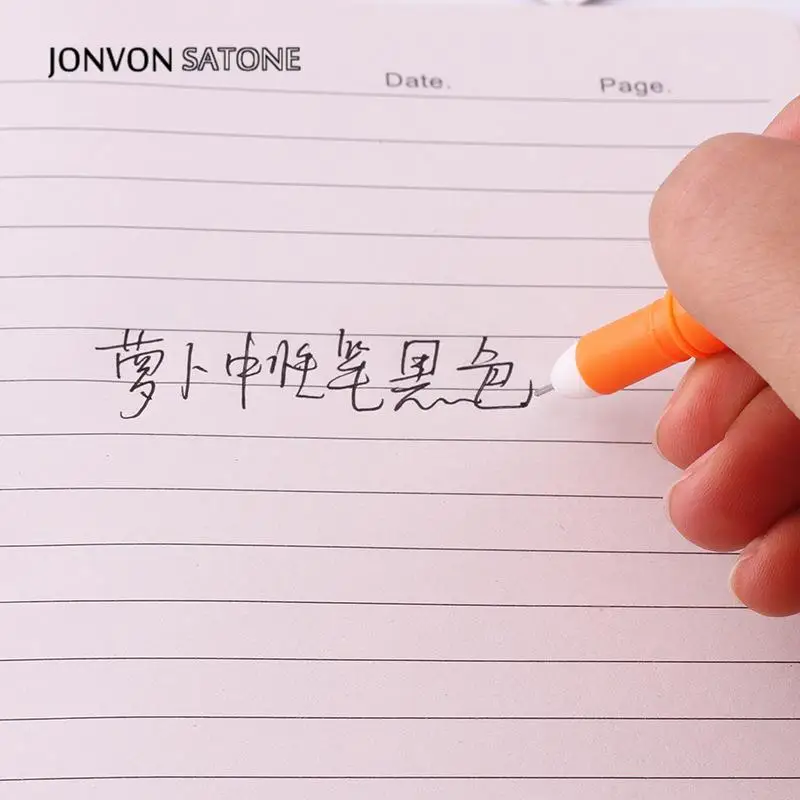 JONVON SATONE
Date.
Page.
萝卜中性笔黑色